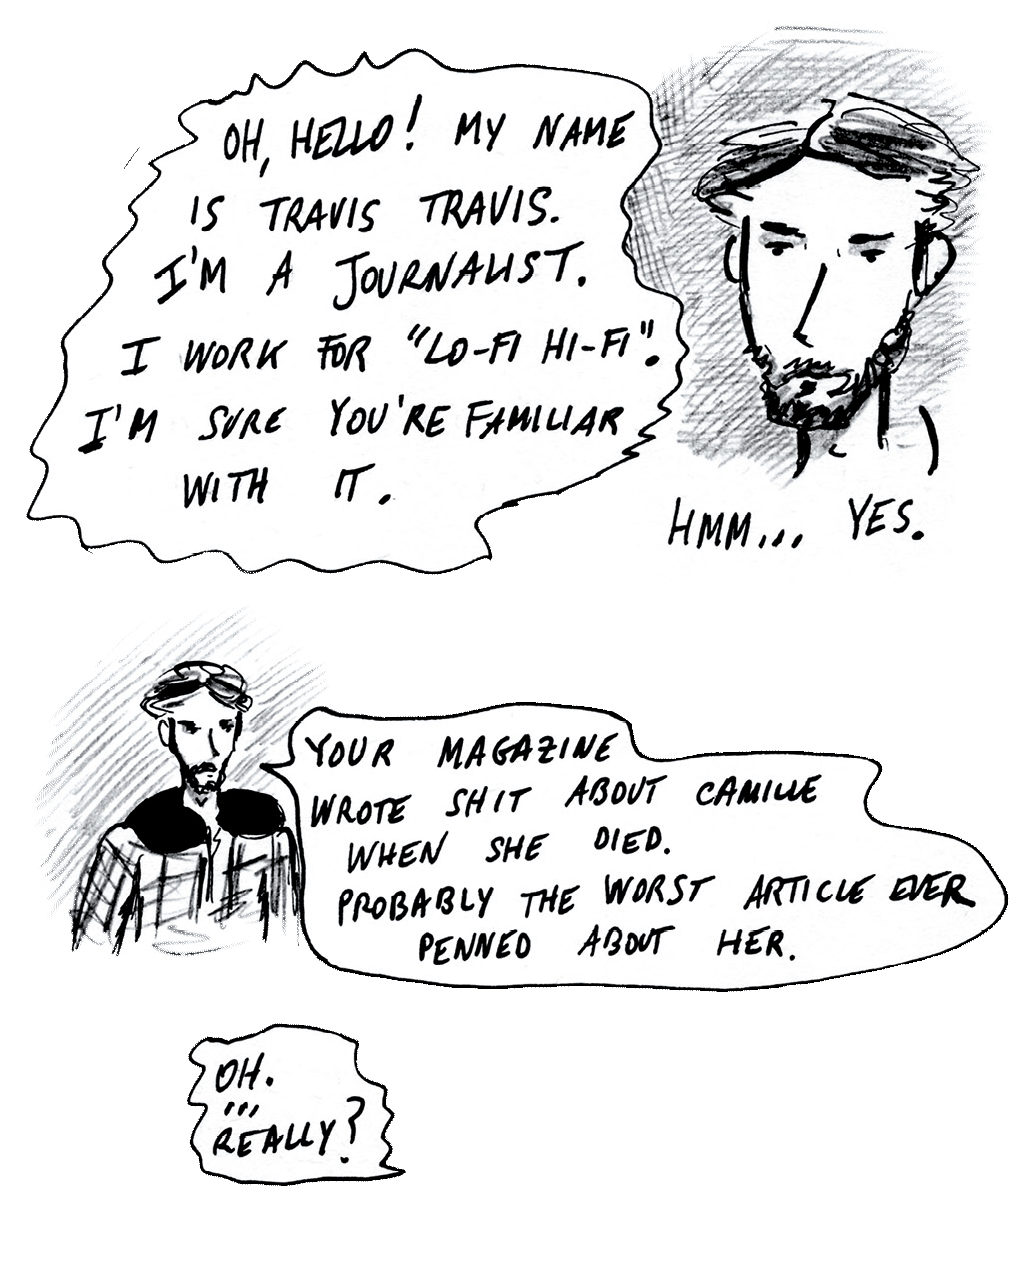 OH, HELLO! MY NAME
IS TRAVIS TRAVIS.
I'M A JOURNALIST.
I WORK FOR "LO-FI HI-FI".
I'M SURE YOU'RE FAMILIAR
WITH IT.
HMM... YES.
YOUR MAGAZINE
WROTE SHIT ABOUT CAMILLE
WHEN SHE DIED.
PROBABLY THE WORST ARTICLE EVER
PENNED ABOUT HER.
OH.
...
REALLY?